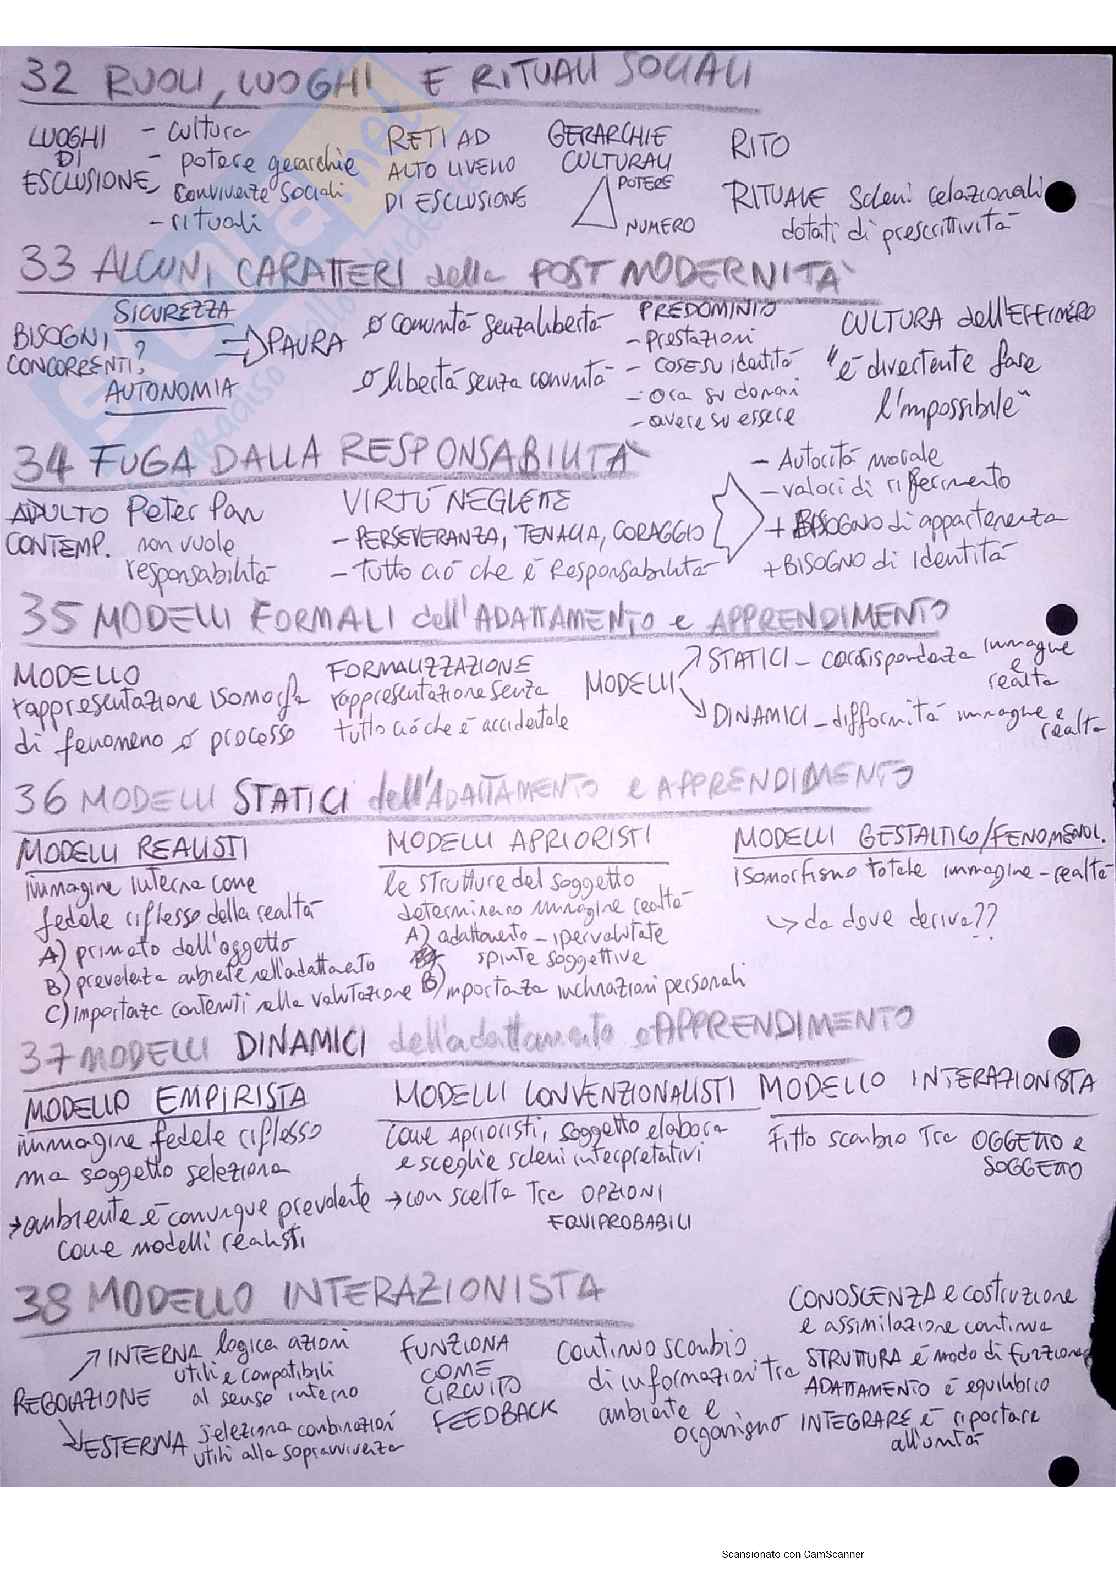 32 RUOLI, LUOGHI E RITUALI SOCIALI
LUOGHI DI ESCLUSIONE
- cultura
- potere gerarchie
convivenze sociali
- rituali
RETI AD
ALTO LIVELLO
DI ESCLUSIONE
GERARCHIE
CULTURALI
POTERE
NUMERO
RITO
RITUALE Schemi relazionali
dotati di prescrittività
33 ALCUNI CARATTERI della POST MODERNITÀ
BISOGNI
CONCORRENTI?
SICUREZZA
AUTONOMIA
PAURA
o comunità senza libertà
o libertà senza comunità
PREDOMINIO
- prestazioni
- cose su identità
- ora su domani
- avere su essere
CULTURA dell'EFFIMERO
"è divertente fare
l'impossibile"
34 FUGA DALLA RESPONSABILITÀ
ADULTO
CONTEMP.
Peter Pan
non vuole
responsabilità
VIRTÙ NEGLETTE
- PERSEVERANZA, TENACIA, CORAGGIO
- tutto ciò che è Responsabilità
- Autorità morale
- valori di riferimento
+ BISOGNO di appartenenza
+ BISOGNO di Identità
35 MODELLI FORMALI dell'ADATTAMENTO e APPRENDIMENTO
MODELLO
rappresentazione isomorfa
di fenomeno o processo
FORMALIZZAZIONE
rappresentazione senza
tutto ciò che è accidentale
MODELLI
STATICI - corrispondenza immagine
e
realtà
DINAMICI - difformità immagine e
realtà
36 MODELLI STATICI dell'ADATTAMENTO e APPRENDIMENTO
MODELLI REALISTI
immagine interna come
fedele riflesso della realtà
A) primato dell'oggetto
B) prevalenza ambiente nell'adattamento
C) importanza contenuti nella valutazione
MODELLI APRIORISTI
le strutture del soggetto
determinano immagine realtà
A) adattamento - ipervalutate
spinte soggettive
B) importanza inclinazioni personali
MODELLI GESTALTICO/FENOMENOL.
isomorfismo totale immagine - realtà
↳ da dove deriva??
37 MODELLI DINAMICI dell'adattamento e APPRENDIMENTO
MODELLO EMPIRISTA
immagine fedele riflesso
ma soggetto seleziona
→ ambiente è comunque prevalente
come modelli realisti
MODELLI CONVENZIONALISTI
Come aprioristi, soggetto elabora
e sceglie schemi interpretativi
→ con scelta tra OPZIONI
EQUIPROBABILI
MODELLO INTERAZIONISTA
Fitto scambio tra OGGETTO e
SOGGETTO
38 MODELLO INTERAZIONISTA
REGOLAZIONE
INTERNA logica azioni
utili e compatibili
al senso interno
ESTERNA seleziona combinazioni
utili alla sopravvivenza
FUNZIONA
COME
CIRCUITO
FEEDBACK
Continuo scambio
di informazioni tra
ambiente e
organismo
CONOSCENZA e costruzione
e assimilazione continua
STRUTTURA è modo di funzionare
ADATTAMENTO è equilibrio
INTEGRARE è riportare
all'unità
Scansionato con CamScanner